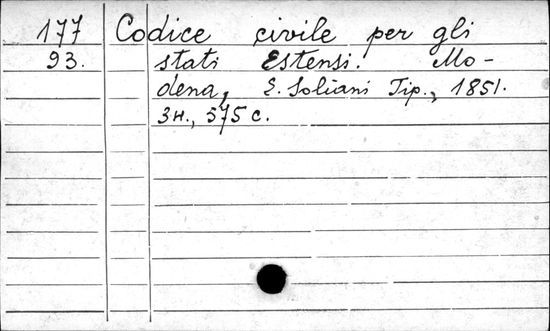 177 Codice civile per gli
93. stati Estensi. Mo-
dena, E. Soliani Tip., 1851.
3н., 575 с.